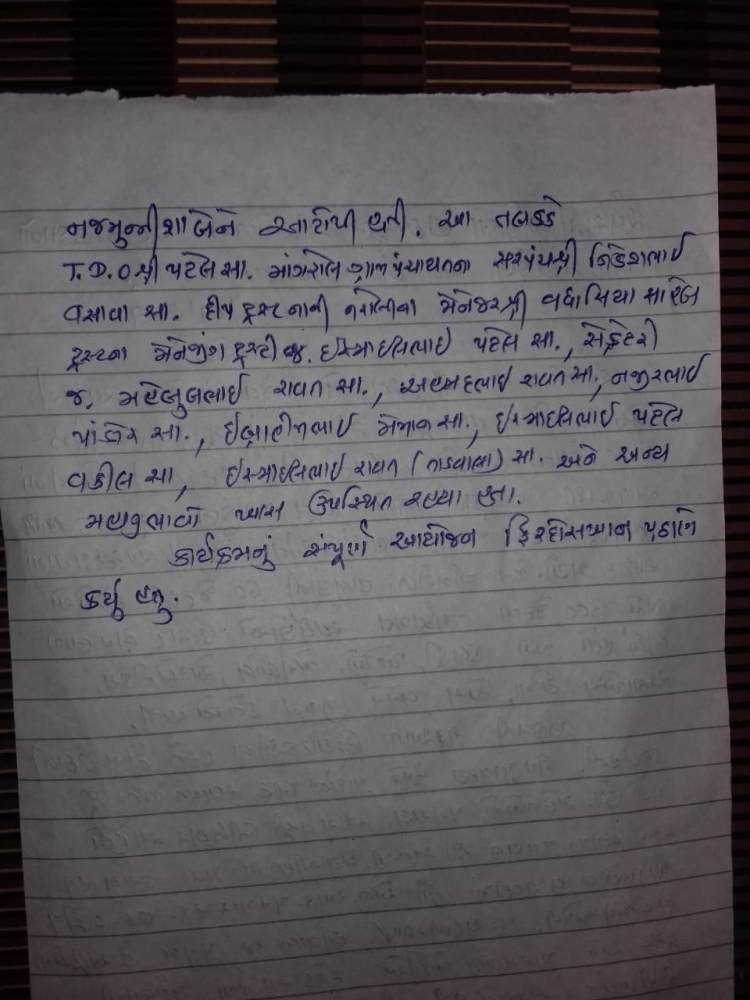 નજમુન્નીશાબેને આટોપી હતી. આ તબક્કે
T.D.O શ્રી પટેલ સા. માંગરોલ ગ્રામ પંચાયતના સરપંચશ્રી નિકેશભાઇ
વસાવા સા. દીપ ટ્રસ્ટનાની નરોલીના મેનેજરશ્રી વઘાસિયા સાહેબ
ટ્રસ્ટના મેનેજીંગ ટ્રસ્ટી જ. ઇસ્માઇલભાઇ પટેલ સા., સેક્રેટરી
જ. મહેબુબભાઇ રાવત સા., અહમદભાઇ રાવત સા., નજીરભાઇ
પાંડોર સા., ઇબ્રાહીમભાઇ મેમાન સા., ઇસ્માઇલભાઇ પટેલ
વકીલ સા, ઇસ્માઇલભાઇ રાવત (તાડવાલા) સા. અને અન્ય
મહાનુભાવો ખાસ ઉપસ્થિત રહ્યા હતા.
કાર્યક્રમનું સંપૂર્ણ આયોજન ફિરદોસખાન પઠાણે
કર્યું હતુ.